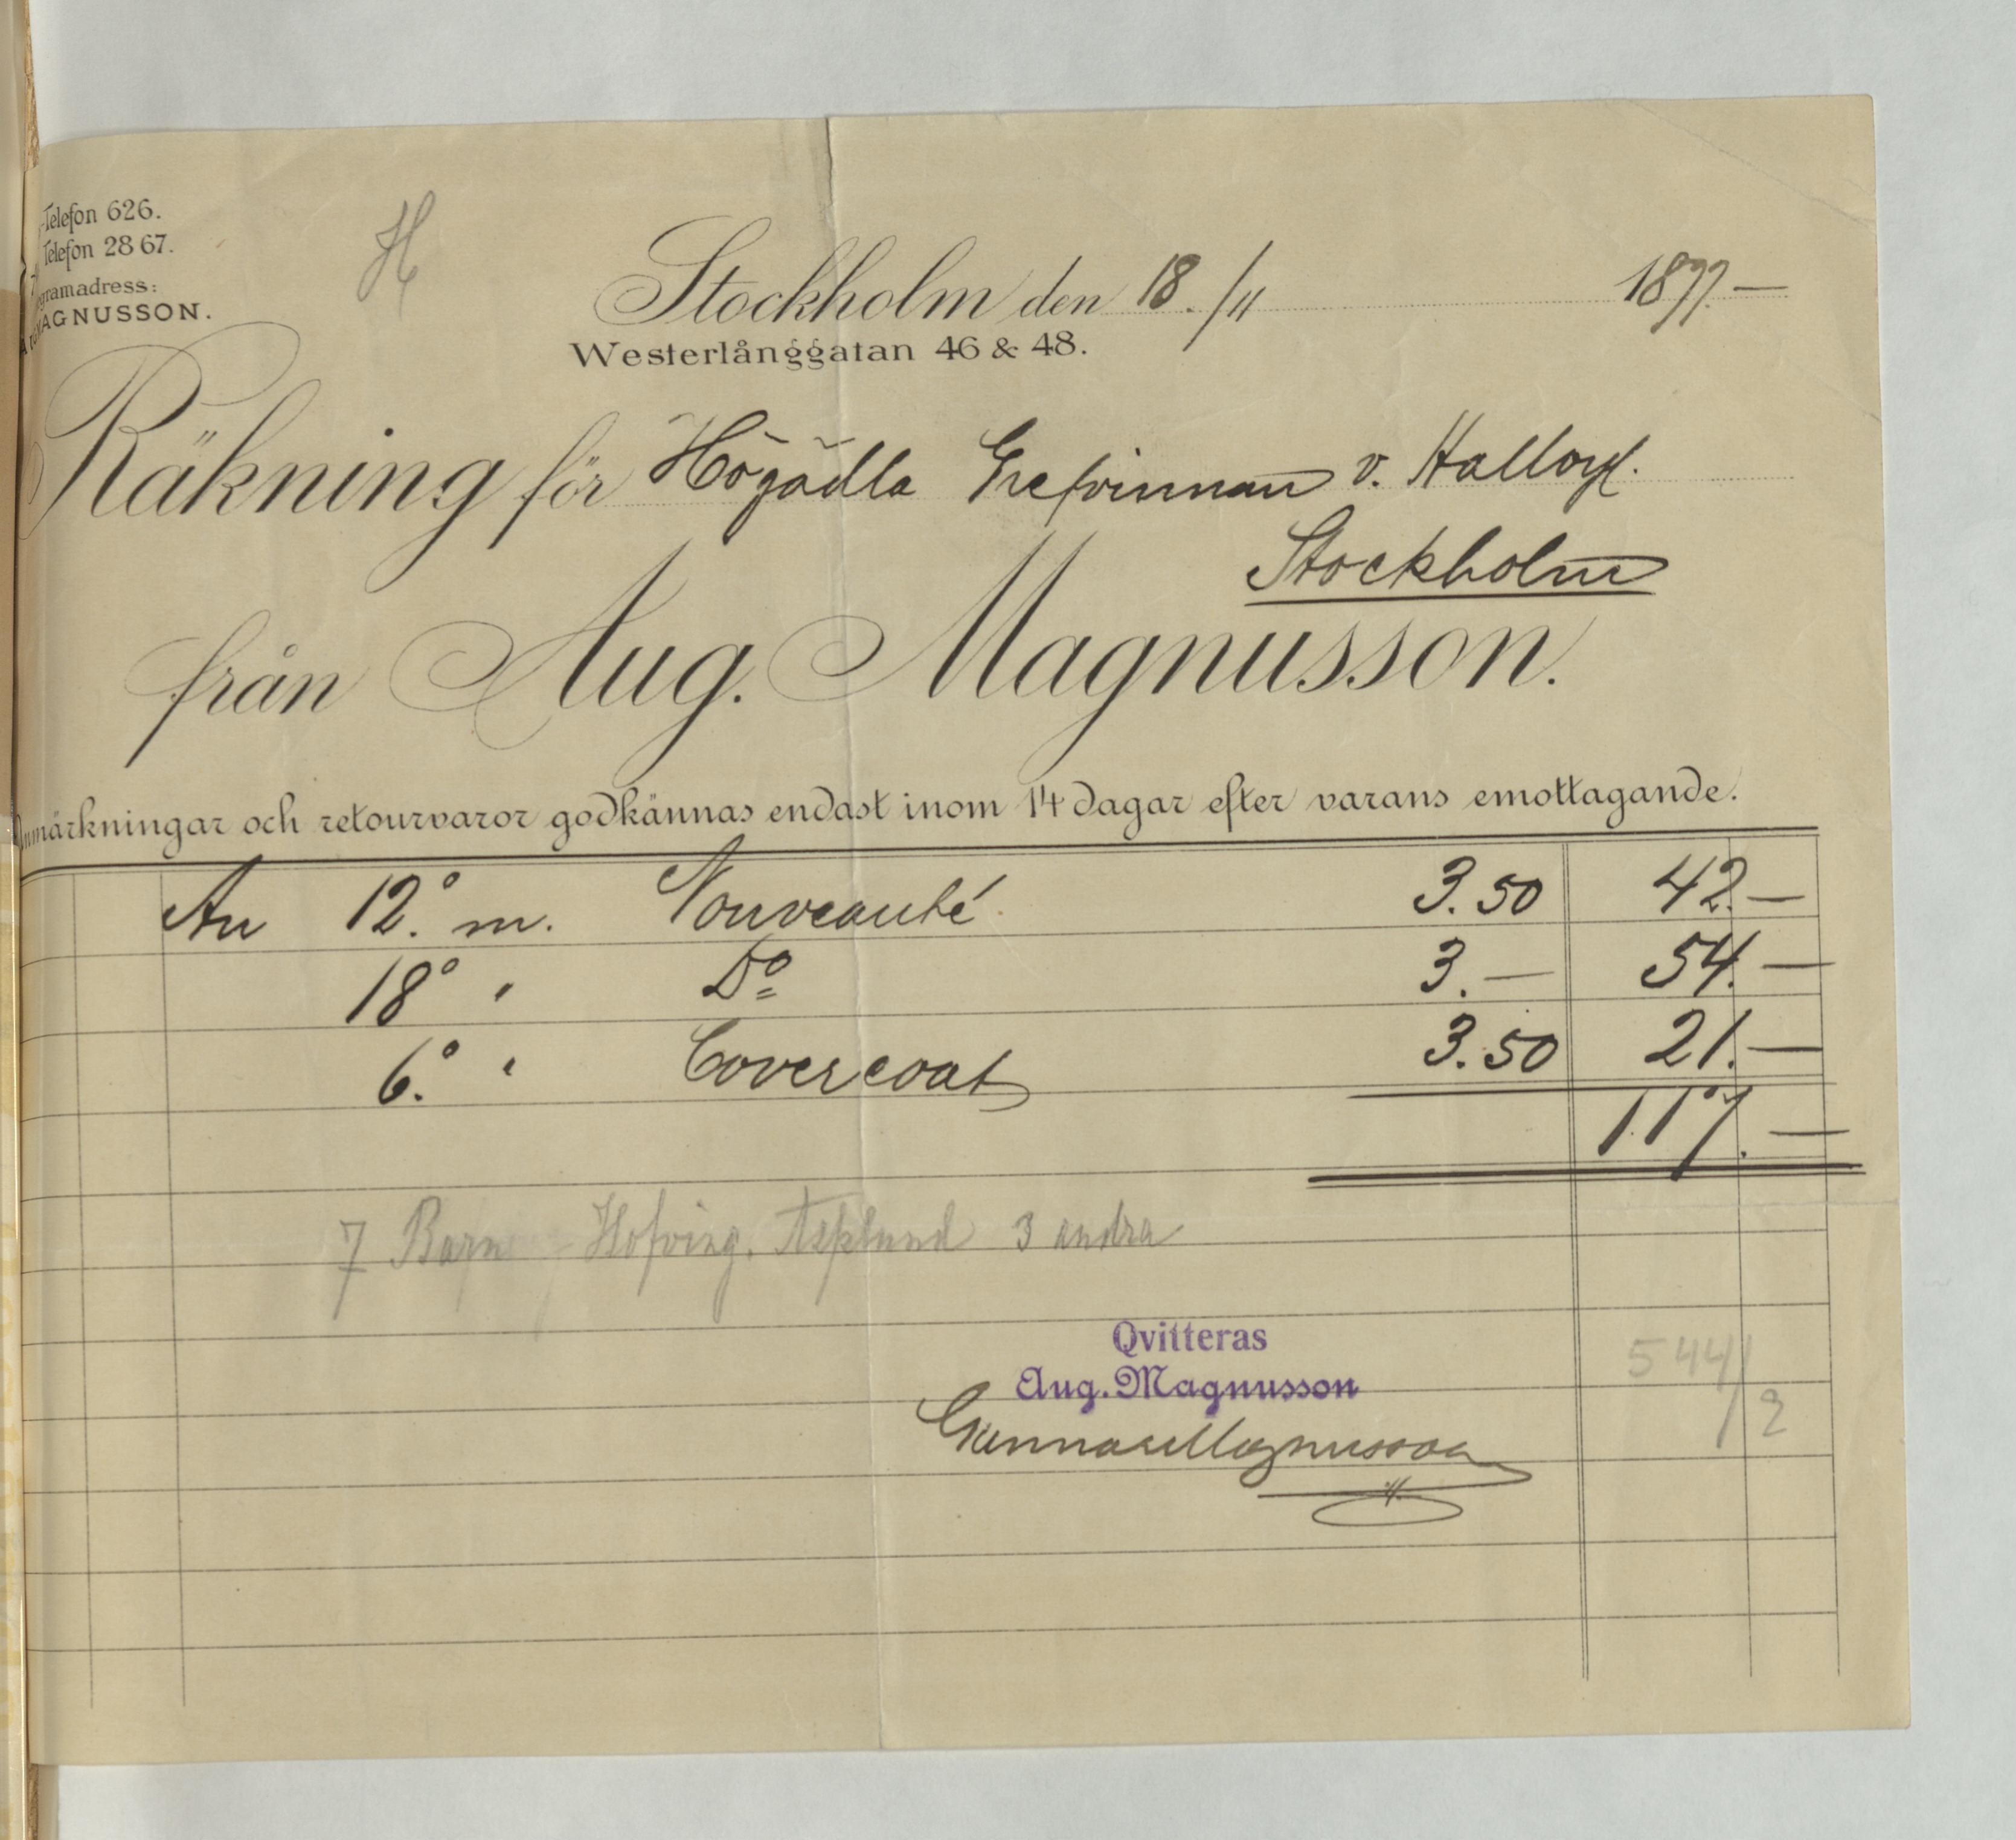 -Telefon 626.
Telefon 28 67.
gramadress:
MAGNUSSON.
H
Stockholm den 18./11 1897.—
Westerlånggatan 46 & 48.
Räkning för Högädla Grefvinnan v. Hallwyl.
Stockholm
från Aug. Magnusson.
nmärkningar och retourvaror godkännas endast inom 14 dagar efter varans emottagande.
An 12.° m. Nouveauté 3.50 42.—
18° " D° 3.— 54.—
6.° " Covercoat 3.50 21.—
117.—
7 Barn Hofving. Asplund 3 andra
Qvitteras
Aug. Magnusson
Gunnar Magnusson
544/2